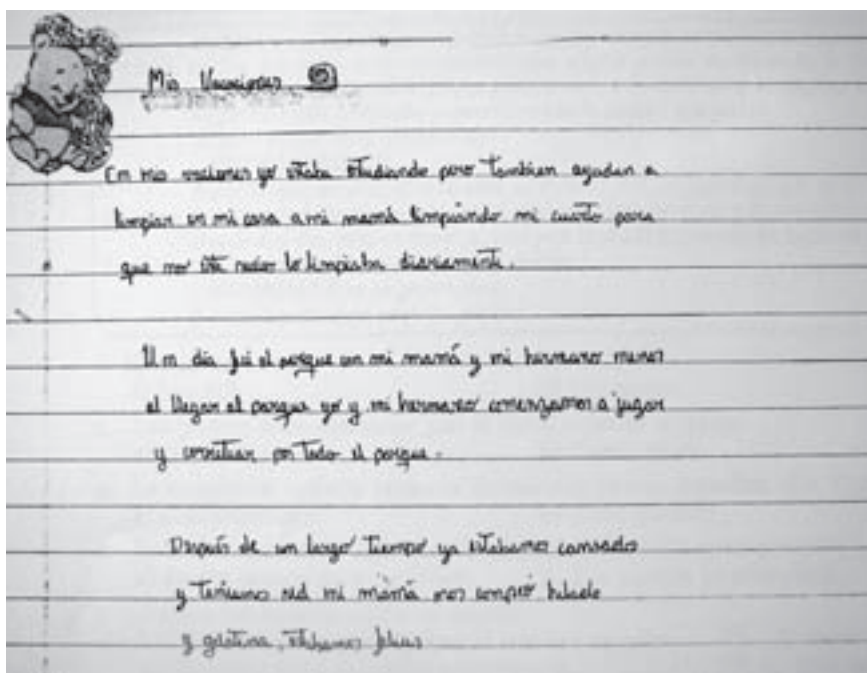 Mis Vacaciones
En mis vaciones yo staba studiando pero tambien ayudar a
limpiar en mi casa a mi mamá limpiando mi cuarto para
que no sté lo limpiaba diariamente.
Un día fui al parque con mi mamá y mi hermano menor
al llegar al parque yo y mi hermano comenzamos a jugar
y corretiar por todo el parque.
Después de un largo tiempo ya stabamos cansado
y teniamos sed mi mamá nos compró helado
y gelatina, stabamos felices